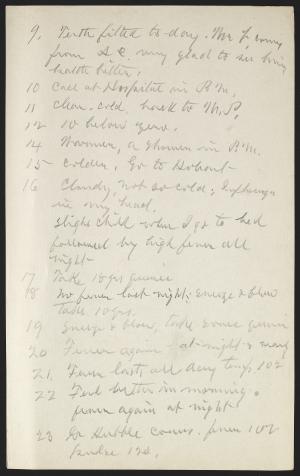 9. Teeth fitted to-day. Mr F. away
from S C. very glad to see him
health better.
10 Call at Hospital in P.M.
11 Clear. cold, back to M. P.
12 10 below zero.
14 Warmer, a shower in P.M.
15 Colder. Go to Hobart
16 Cloudy, not so cold;
in my head.
slight chill when I go to bed
followed by high fever all
night
17 Take 18 grs quinine
18 No fever last night; sneeze & blow
take 10 grs.
19 Sneeze & blow, take some quinin
20 Fever again at night &
21. Fever last, all day temp, 102
22 Feel better in morning.
fever again at night
23 Dr Hubble comes. fever 102
Pulse 120.